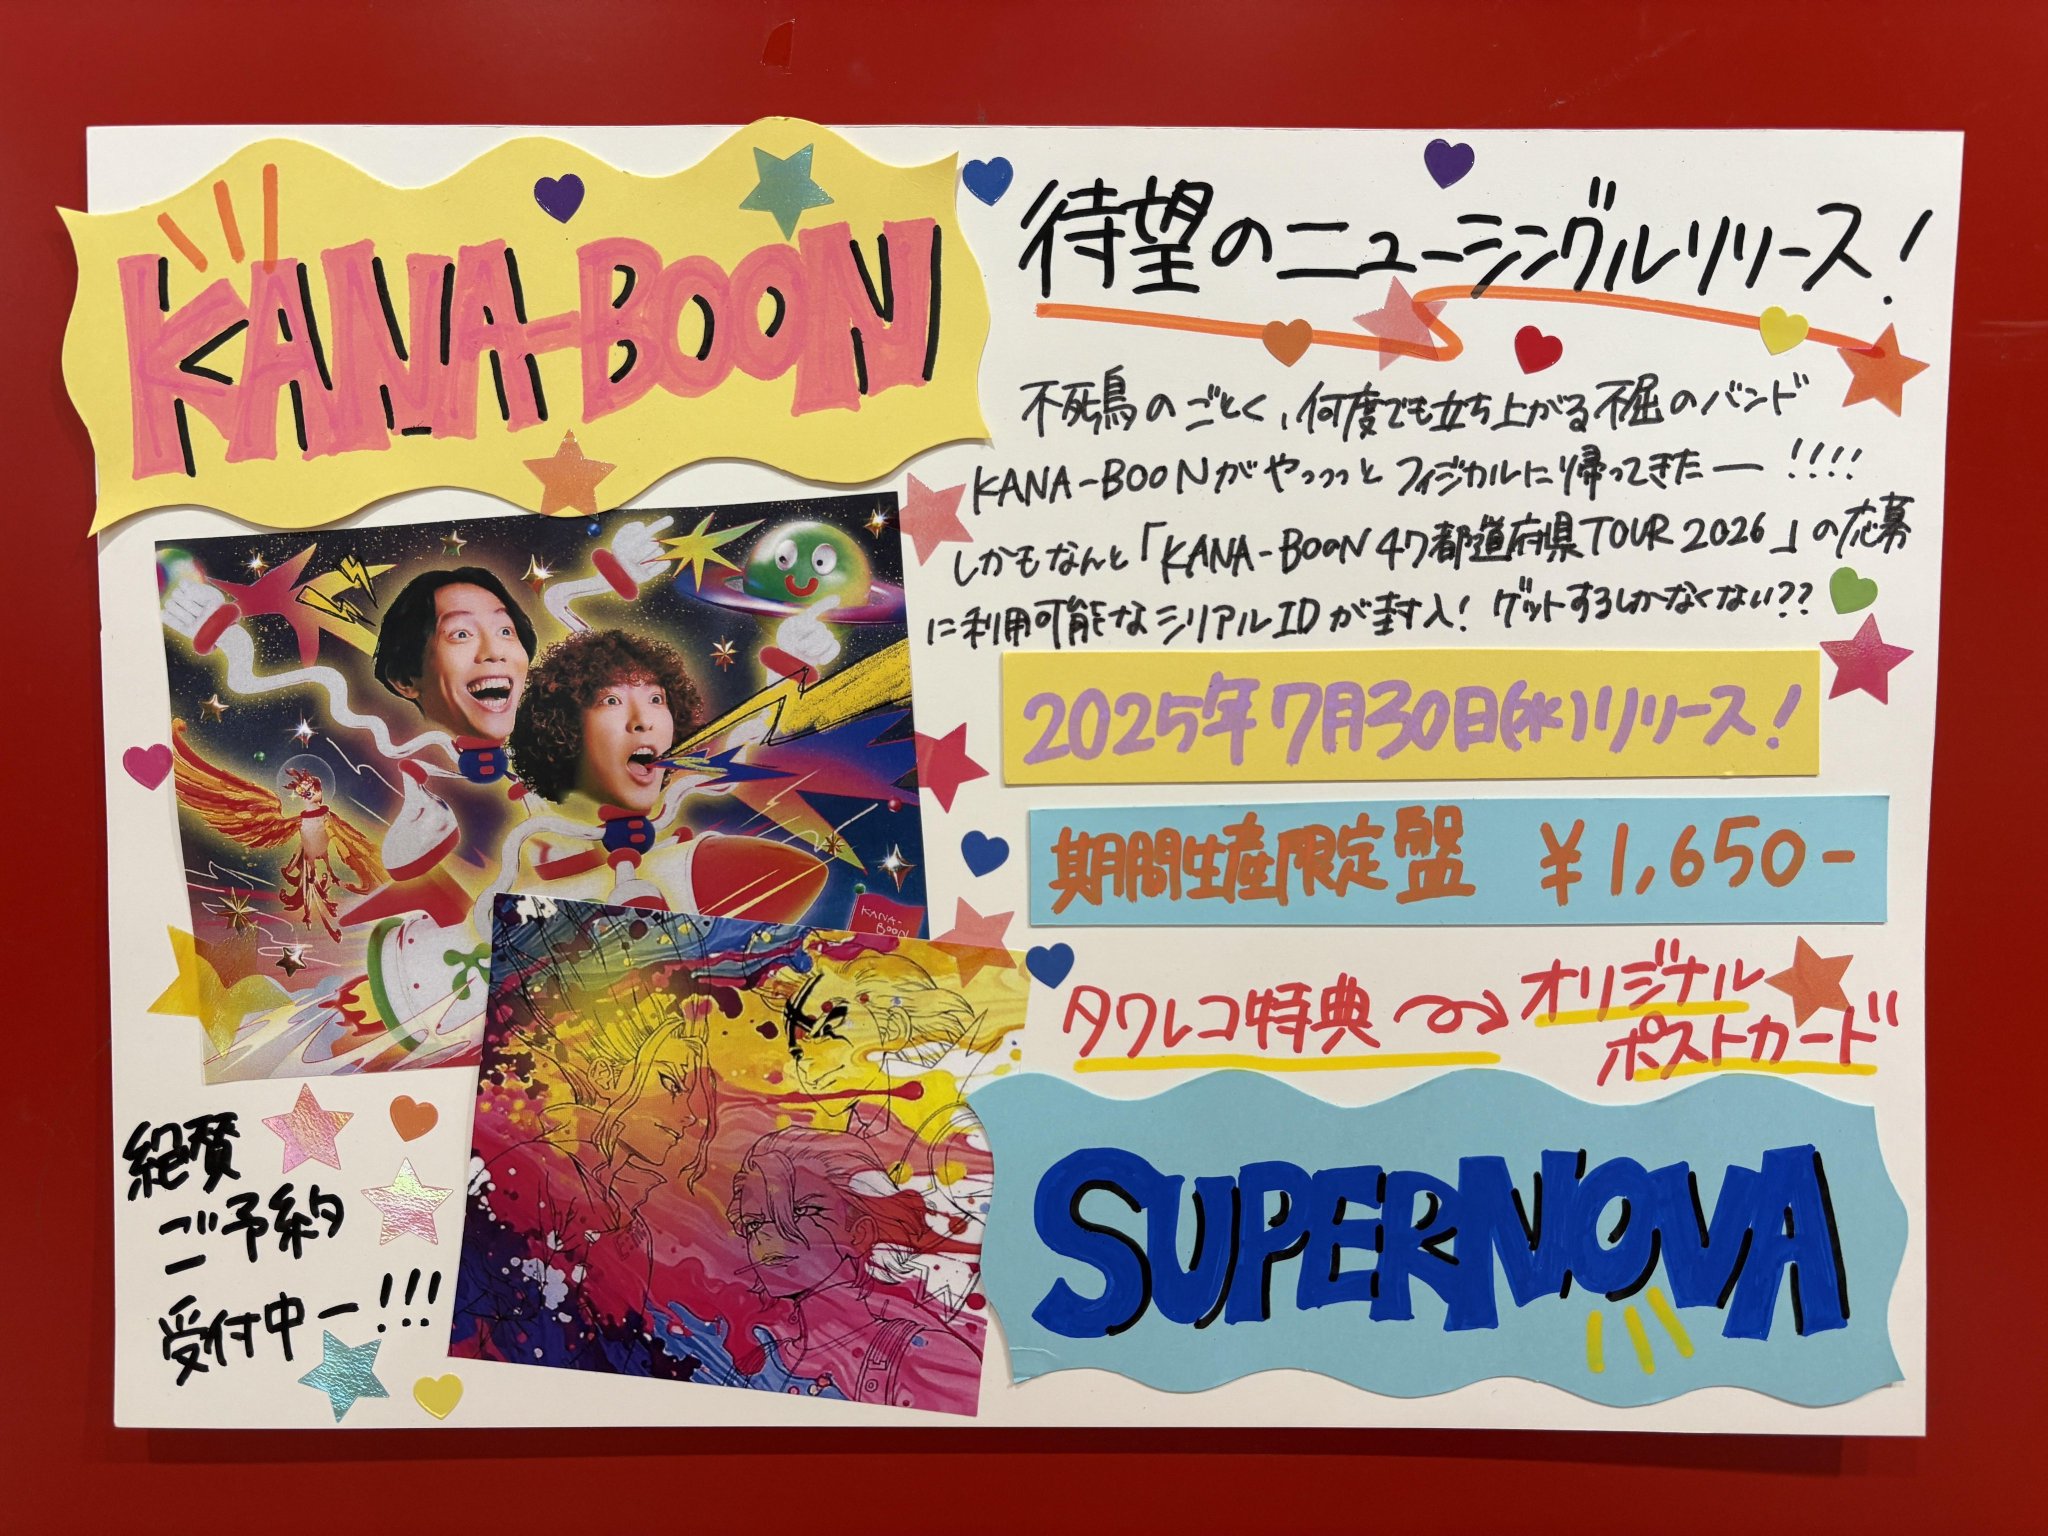 KANA-BOON
待望のニューシングルリリース!
不死鳥のごとく、何度でも立ち上がる不屈のバンド
KANA-BOONがやっっっとフィジカルに帰ってきたー!!!!
しかもなんと「KANA-BOON 47都道府県TOUR 2026」の応募
に利用可能なシリアルIDが封入! ゲットするしかなくない??
2025年7月30日(水)リリース!
期間生産限定盤 ¥1,650-
タワレコ特典 オリジナル
ポストカード
KANA-
BOON
絶賛
ご予約
受付中ー!!!
SUPERNOVA